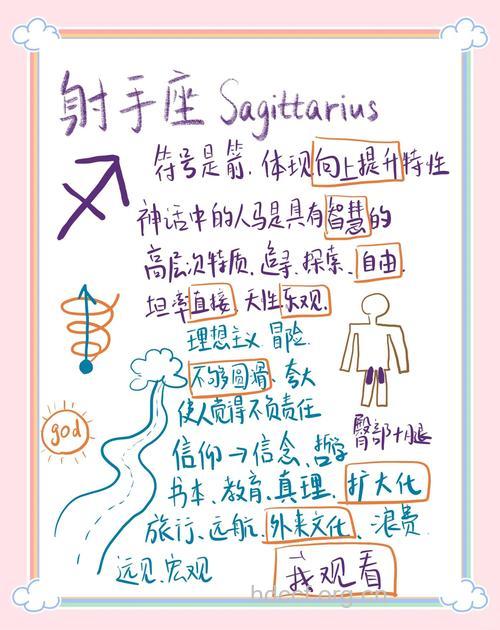 射手座 Sagittarius
符号是箭、体现向上提升特性
神话中的人马是具有智慧的
高层次特质、追寻、探索、自由、
坦率直接、天性乐观、
理想主义 冒险、
不够圆滑、夸大
使人觉得不负责任
臀部大腿
god
信仰→信念、哲学
书本、教育、真理、扩大化
旅行、远航、外来文化、浪费
远见、宏观
我观看
hdcet.org.cn